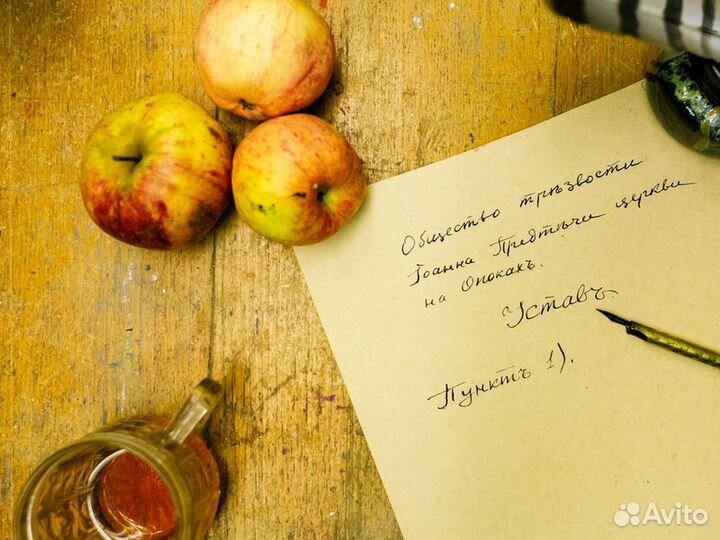 Общество трѣзвости
Іоанна Предтѣчи церкви
на Опокахъ.
Уставъ.
Пунктъ 1).
Avito